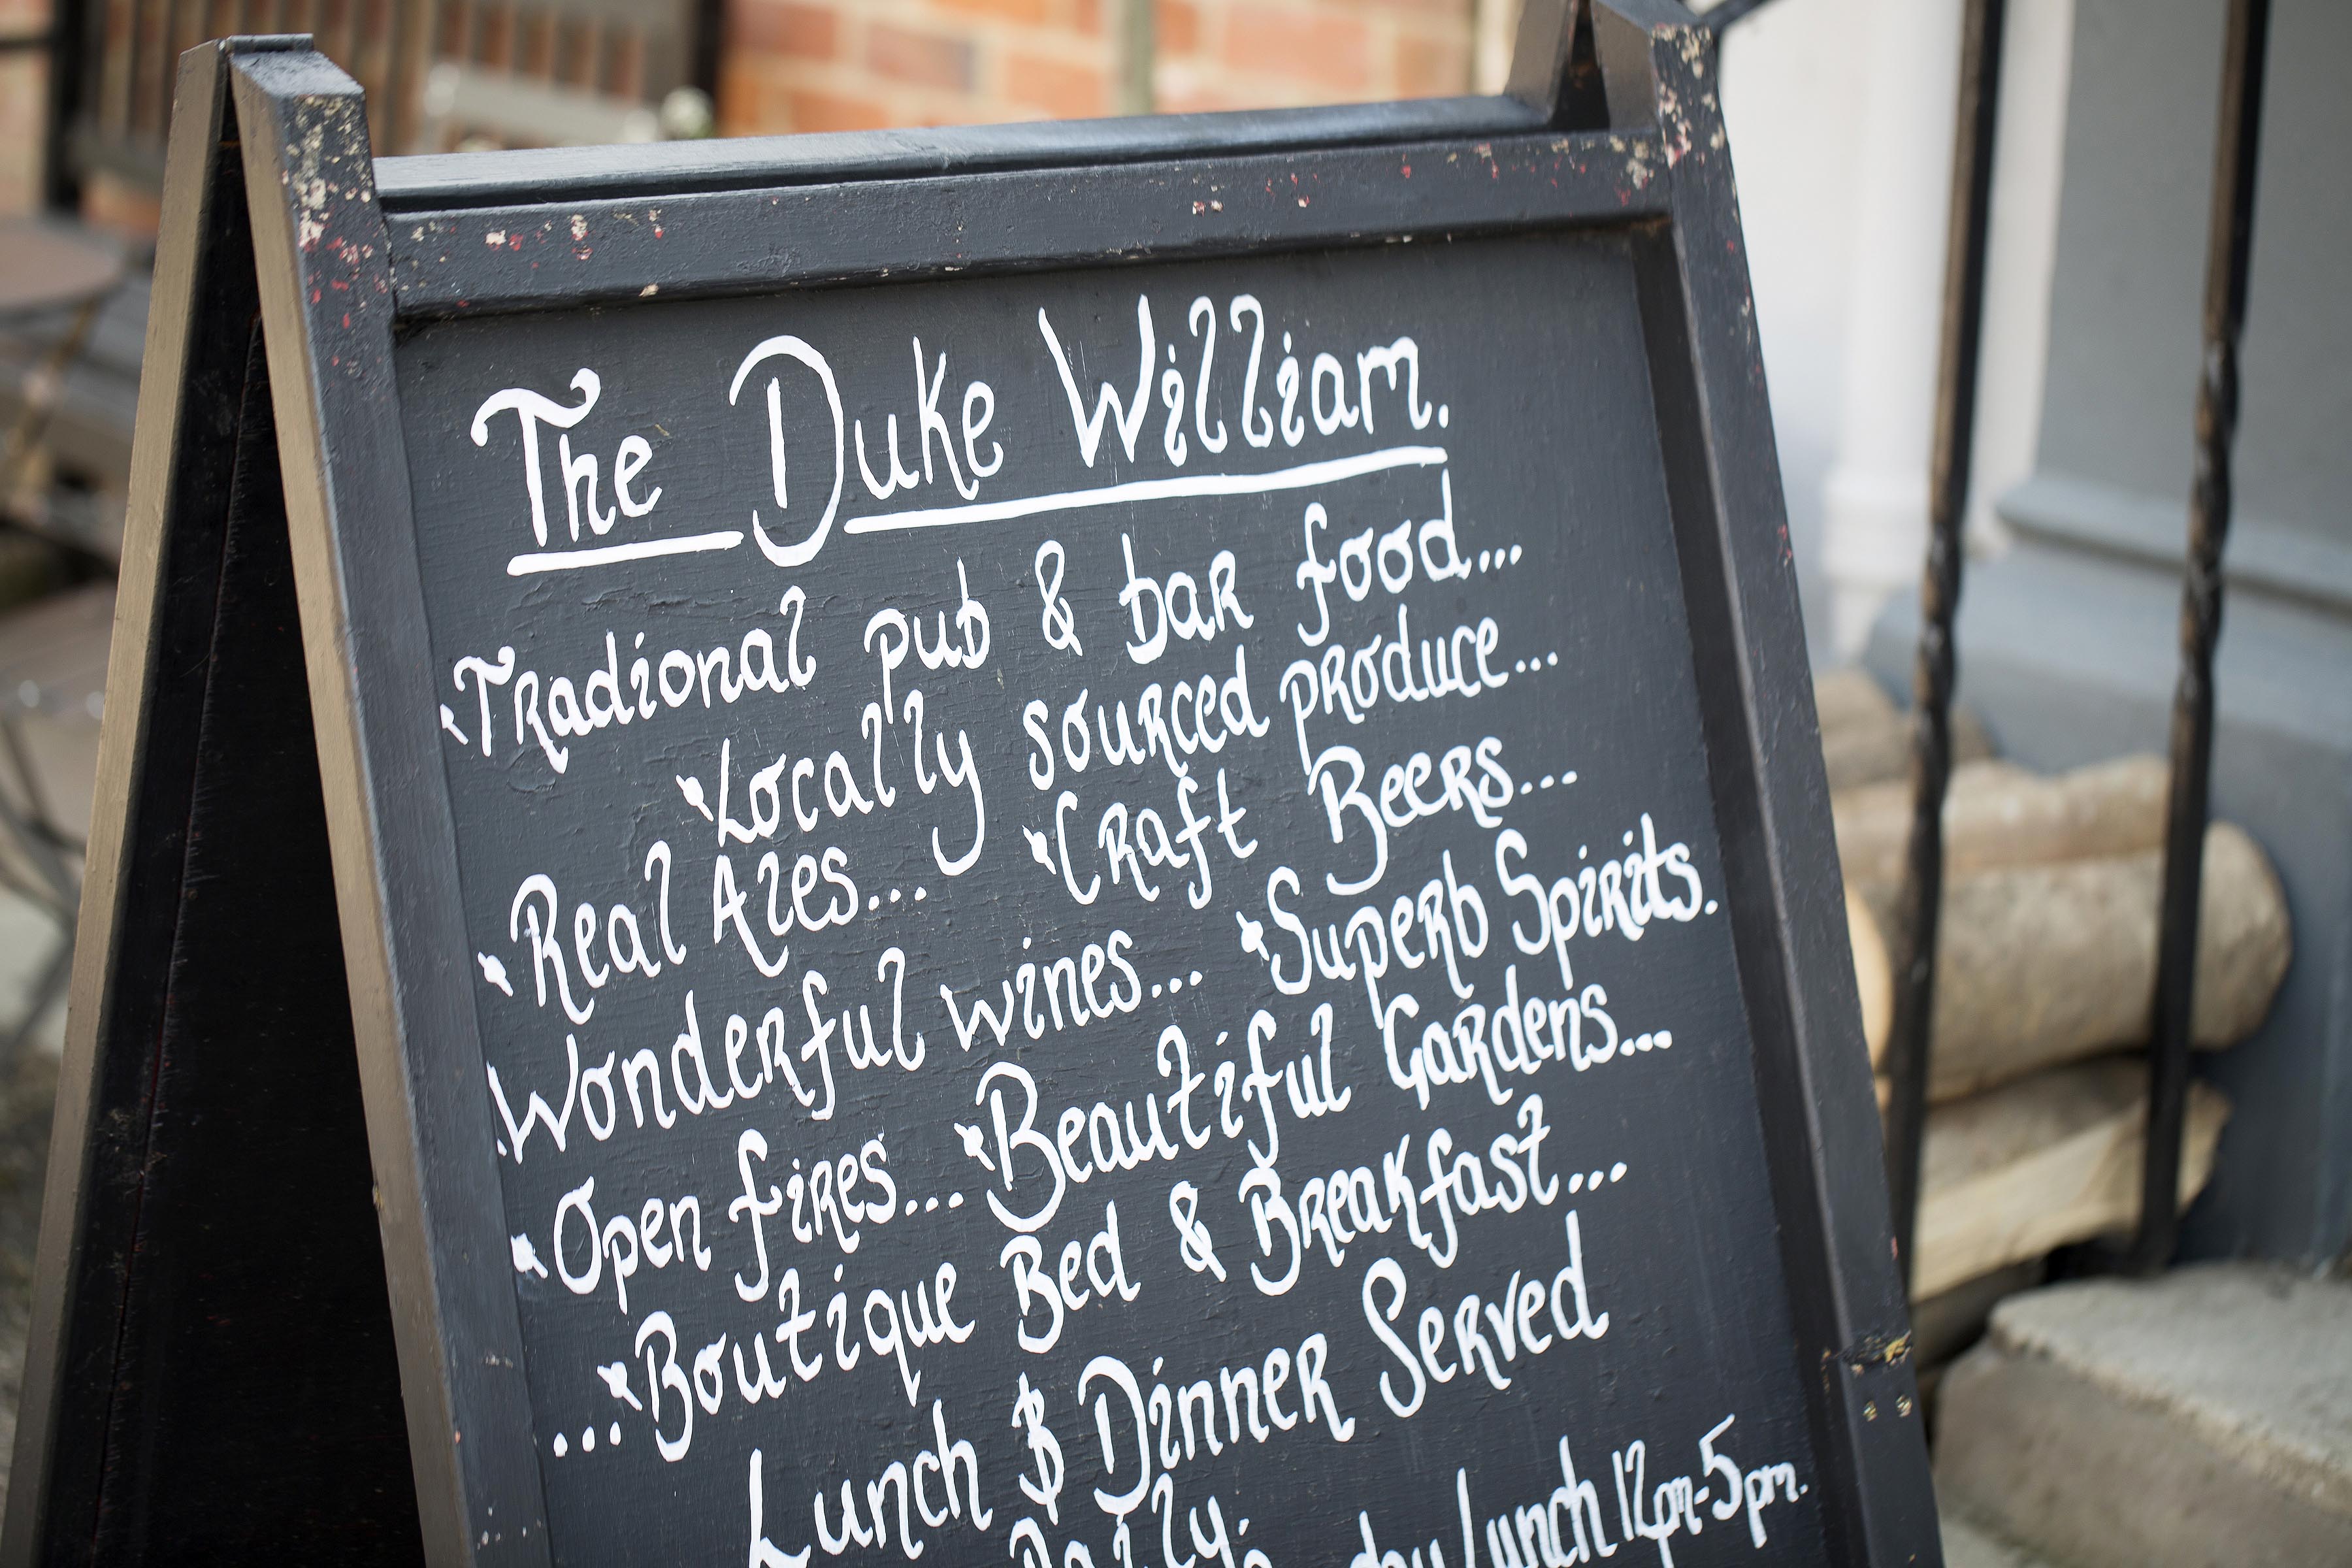 The Duke William.
Tradional pub & bar food...
Locally sourced produce...
Real Ales... Craft Beers...
Wonderful wines... Superb Spirits.
Open fires... Beautiful Gardens...
...Boutique Bed & Breakfast...
Lunch & Dinner Served
Daily.
Lunch 12pm-5pm.